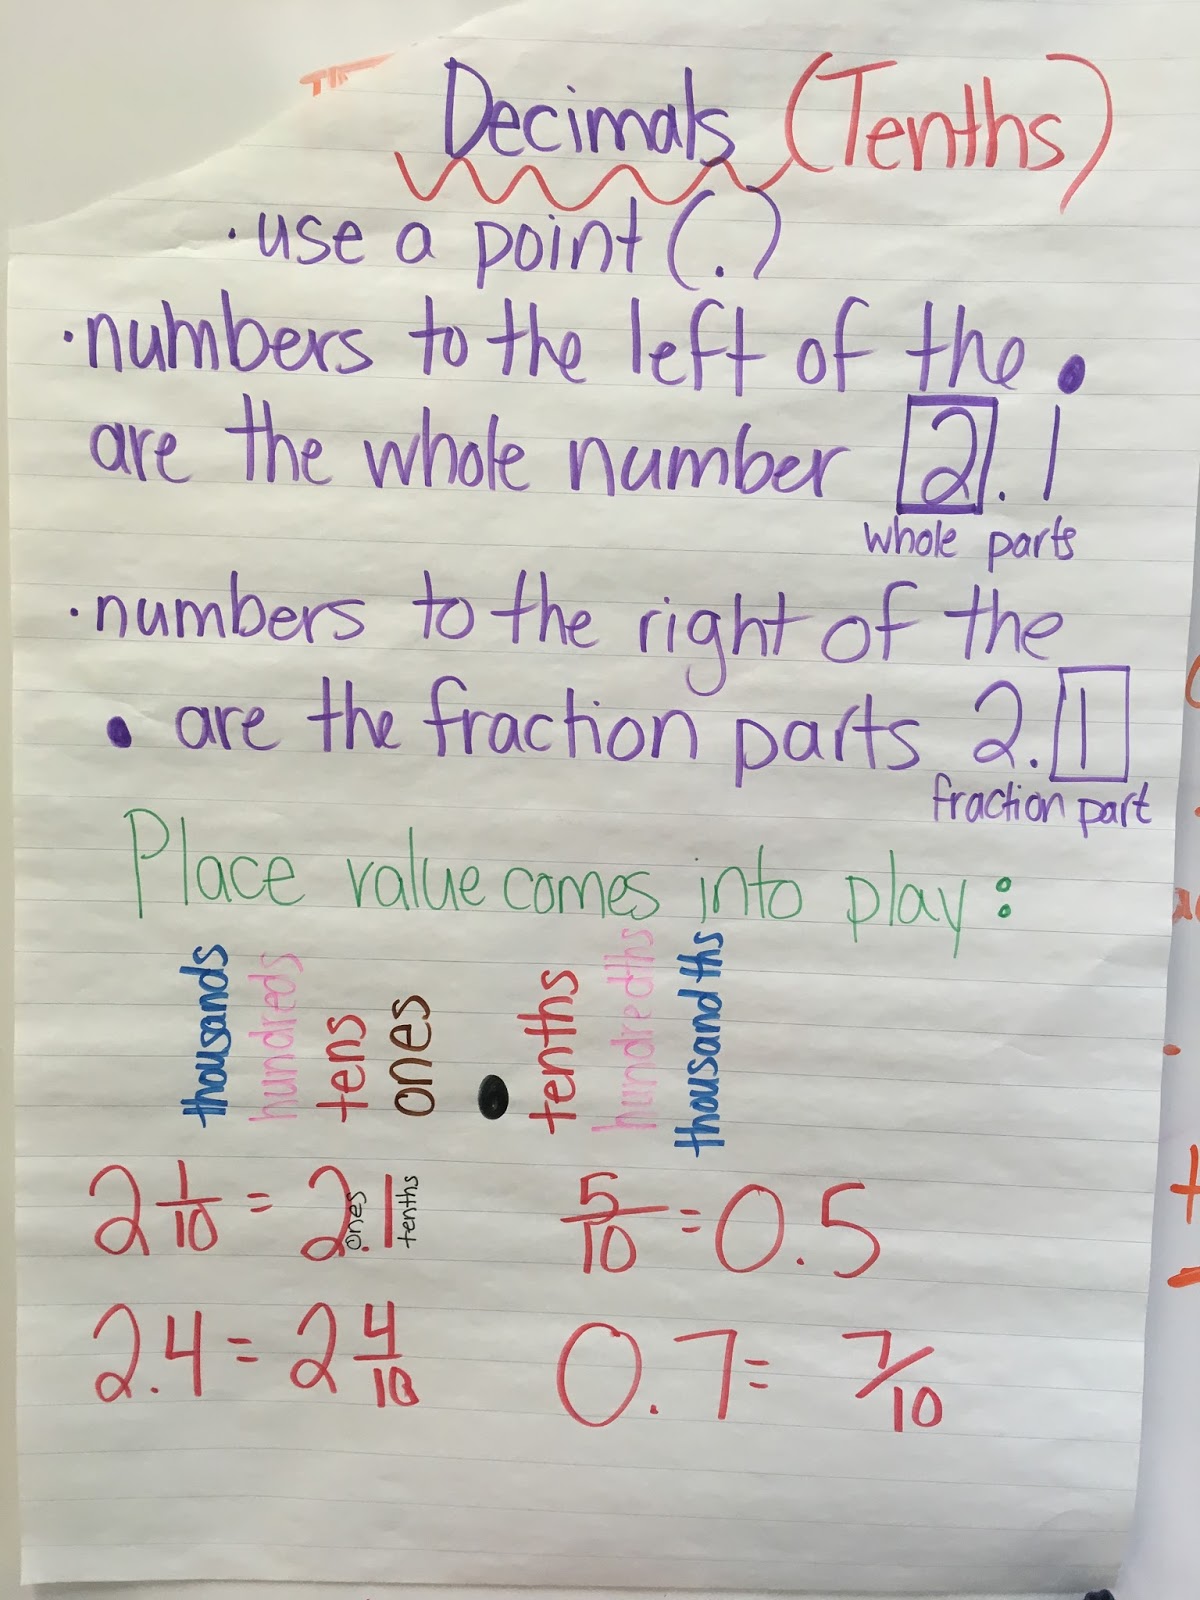 Decimals (Tenths)
· use a point (.)
· numbers to the left of the •
are the whole number 2.1
whole parts
· numbers to the right of the
• are the fraction parts 2.1
fraction part
Place value comes into play:
thousands hundreds tens ones • tenths hundredths thousandths
2 1/10 = 2.1 ones tenths 5/10 = 0.5
2.4 = 2 4/10 0.7 = 7/10